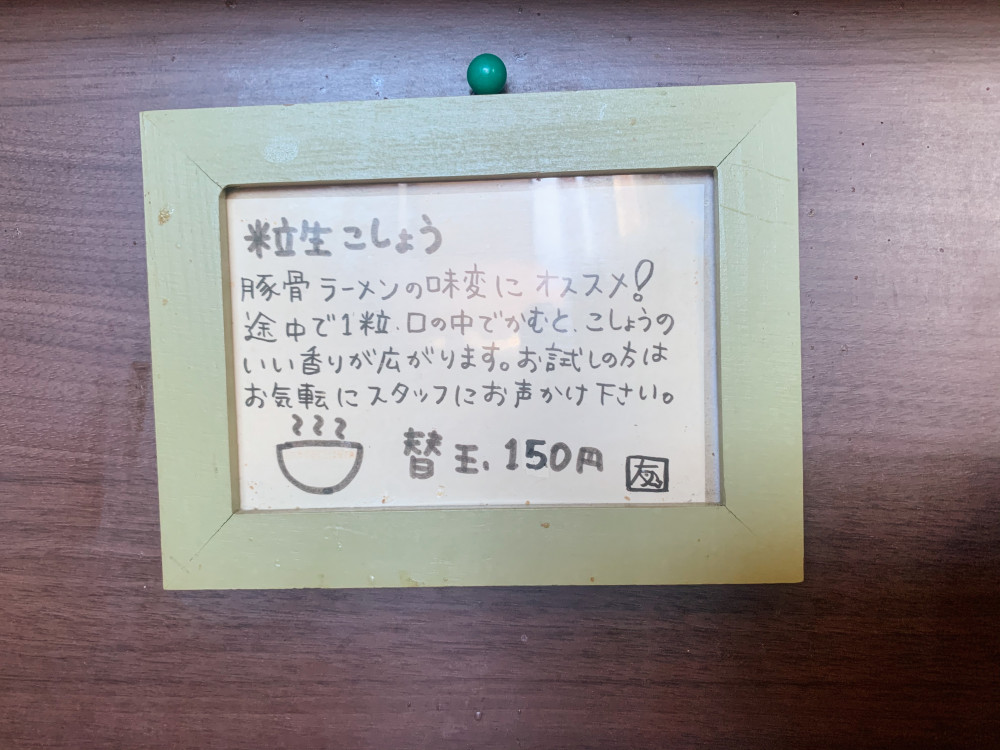 粒生こしょう
豚骨ラーメンの味変にオススメ!
途中で1粒、口の中でかむと、こしょうの
いい香りが広がります。お試しの方は
お気転にスタッフにお声かけ下さい。
替玉、150円